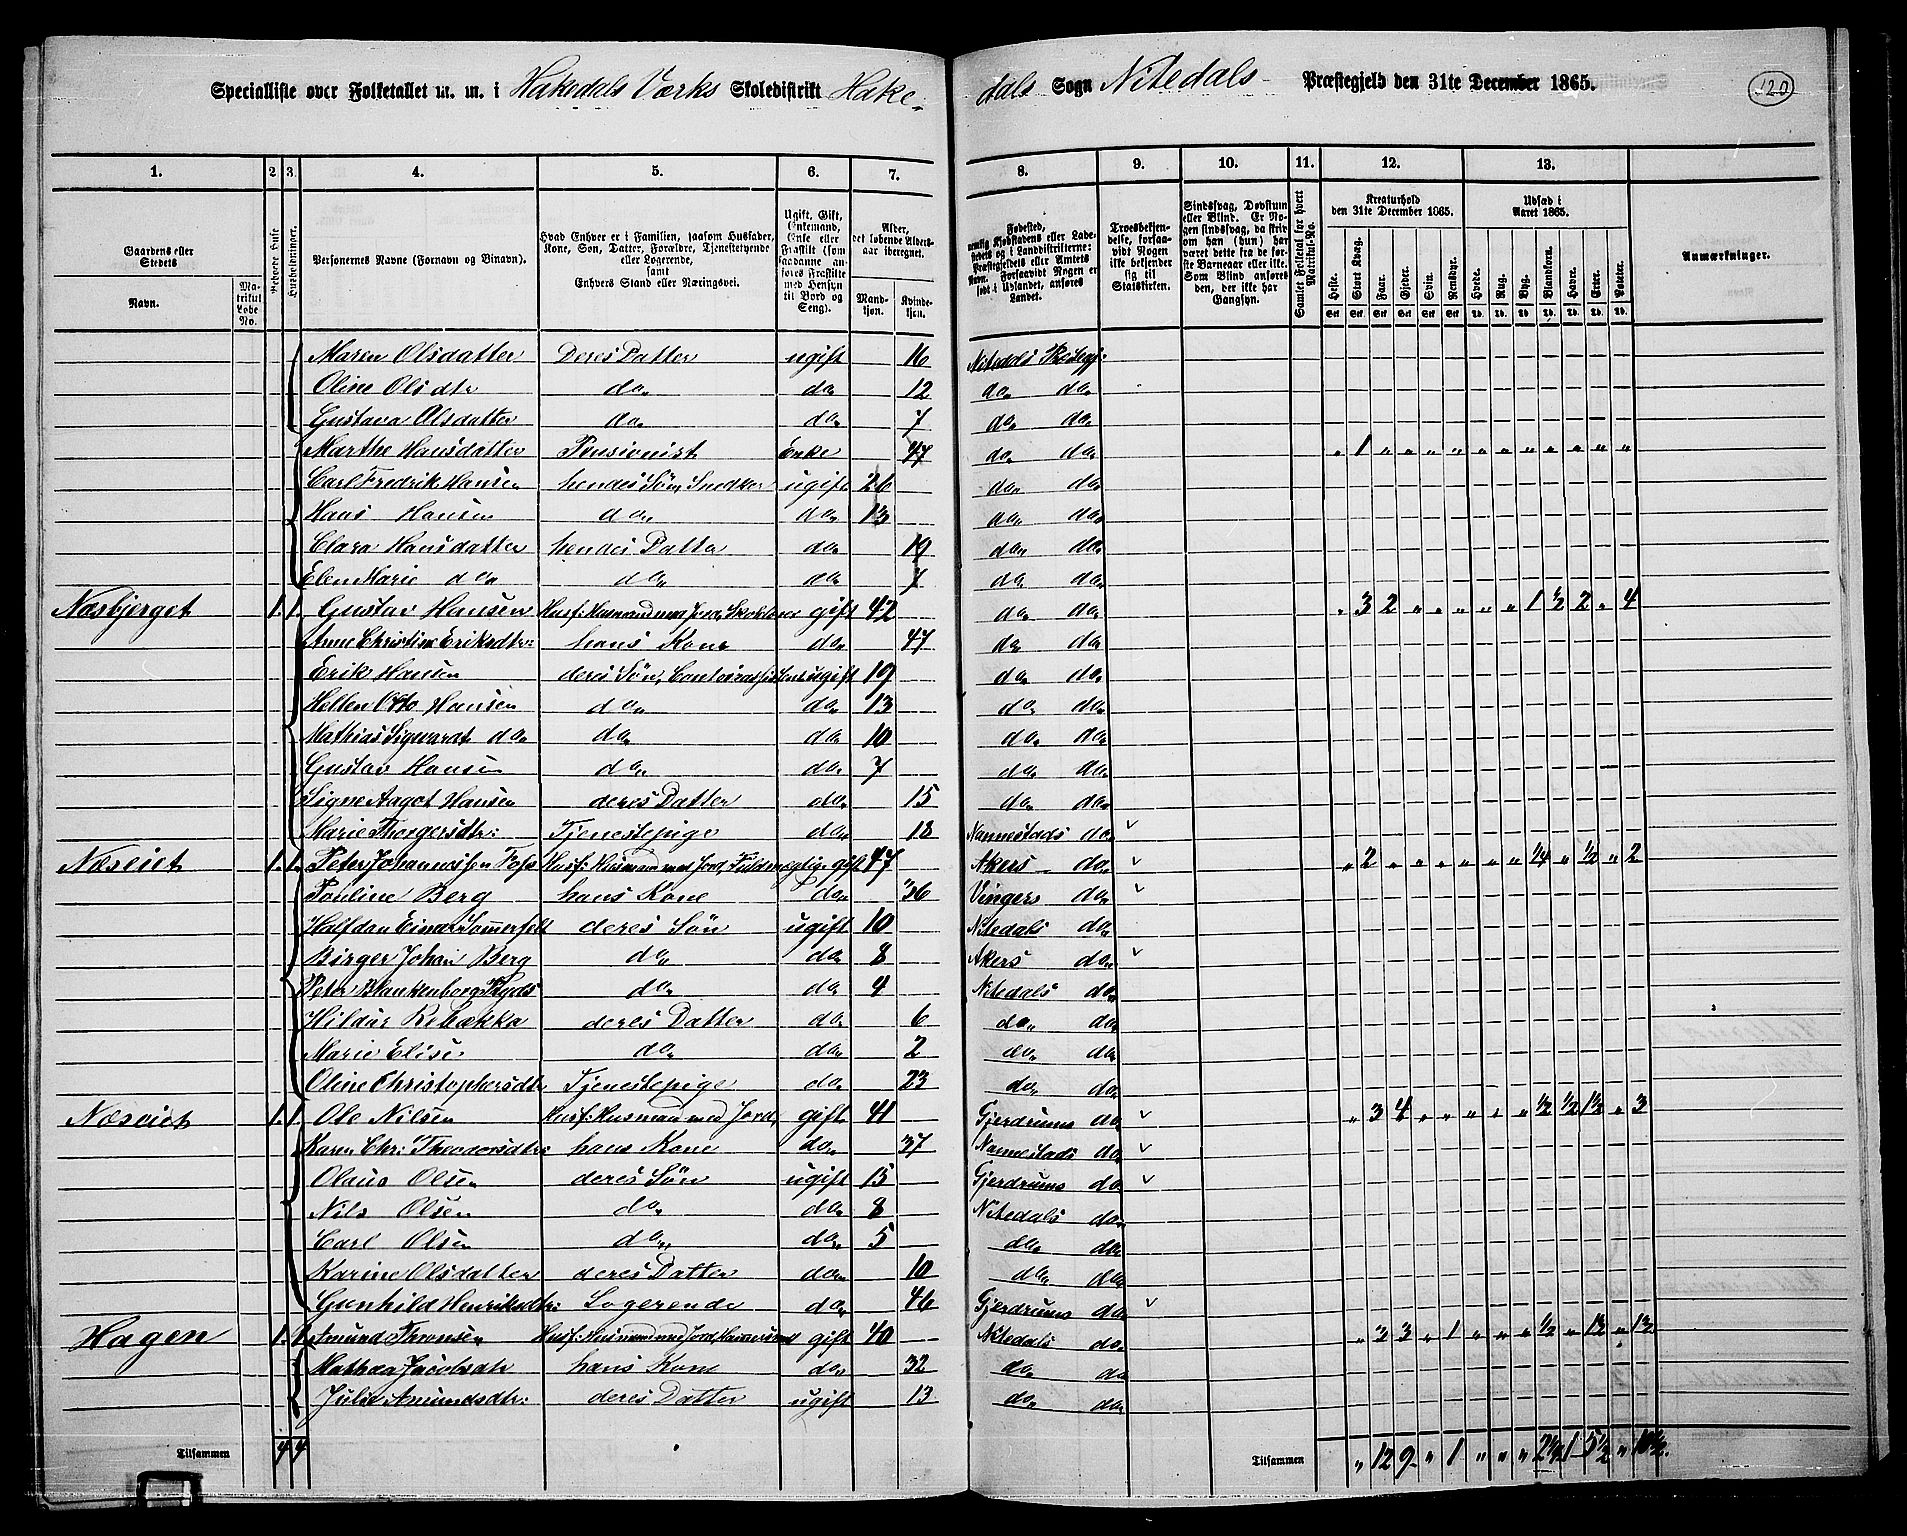 Specialliste over Folketallet m. m. i Hakedals Værks Skoledistrikt Hake-
dals Sogn Nitedals Præstegjeld den 31te December 1865.
120
1. 2 3. 4. 5. 6. 7. 8. 9. 10. 11. 12. 13.
Gaardens eller Stedets
Navn.
Matrikul Løbe No.
Beboede Huse
Husholdninger.
Personernes Navne (Fornavn og Binavn).
Hvad Enhver er i Familien, saasom Husfader, Kone, Søn, Datter, Forældre, Tjenestetyende eller Logerende, samt Enhvers Stand eller Næringsvei.
Ugift, Gift, Enkemand, Enke eller Fraskilt (som saadanne anføres Fraskilte med Hensyn til Bord og Seng).
Alder, det løbende Aldersaar iberegnet.
Mandkjøn. Kvindekjøn.
Fødested,
Troesbekjendelse, forsaavidt Nogen ikke bekjender sig til Statskirken.
Sindssvag, Døvstum eller Blind. Er Nogen sindssvag, da skrives om han (hun) har været dette fra de første Barneaar eller ikke. Som Blind anføres den, der ikke har Gangsyn.
Samlet Folketal for hvert Matrikul-No.
Kreaturhold den 31te December 1865.
Heste. Stort Kvæg. Faar. Gjeder. Svin. Rensdyr.
Udsæd i Aaret 1865.
Hvede. Rug. Byg. Blandkorn. Havre. Erter. Poteter.
Anmærkninger.
Maren Olsdatter Deres Datter ugift 16 Nitedals Præstegj:
Oline Olsdtr do„ do„ 12 do„ do„
Gustava Olsdatter do„ do„ 7 do„ do„
Marthe Hansdatter Pensionist Enke 47 do„ do„ „ 1 „ „ „ „ „ „ „ „ „ „ „
Carl Fredrik Hansen hendes Søn, Snedker ugift 26 do„ do„
Hans Hansen do„ do„ 13 do„ do„
Clara Hansdatter hendes Datter do„ 19 do„ do„
Elen Marie do„ do„ do„ 7 do„ do„
Næsbjerget 1. 1. Gustav Hansen Husf: Husmand med Jord, gift 42 do„ do„ „ 3 2 „ „ „ „ „ 1 ½ 2 „ 4
Anne Christine Eriksdtr: hans Kone do„ 47 do„ do„
Erik Hansen deres Søn, Contorassistent ugift 19 do„ do„
Otto Hansen do„ do„ 13 do„ do„
Mathias Sigvardt do„ do„ do„ 10 do„ do„
Gustav Hansen do„ do„ 7 do„ do„
Signe Aagot Hansen deres Datter do„ 15 do„ do„
Marie Thorgersdtr: Tjenestepige do„ 18 Nannestads do„
Næseiet 1. 1. Peter Johannessen Foss Husf: Husmand med Jord, Fuldmægtig gift 47 Akers do„ „ 2 „ „ „ „ „ „ ¼ „ ½ „ 2
Pouline Berg hans Kone do„ 36 Vingers do„
Halfdan Einar Sommerfelt deres Søn ugift 10 Nitedals do„
Birger Johan Berg do„ do„ 8 Akers do„
Peter Blankenborg do„ do„ 4 Nitedals do„
Hildur Rebækka deres Datter do„ 6 do„ do„
Marie Elise do„ do„ 2 do„ do„
Oline Christophersdtr Tjenestepige do„ 23 do„ do„
Næseiet 1. 1. Ole Nilsen Husf: Husmand med Jord, gift 41 Gjerdrums do„ „ 3 4 „ „ „ „ „ ½ ½ 1½ „ 3
Karen Chr: Theodorsdtr: hans Kone do„ 37 Nannestads do„
Olaus Olsen deres Søn ugift 15 Gjerdrums do„
Nils Olsen do„ do„ 8 Nitedals do„
Carl Olsen do„ do„ 5 do„ do„
Karine Olsdatter deres Datter do„ 10 do„ do„
Gunhild Henriksdtr: Logerende do„ 46 Gjerdrums do„
Hagen 1. 1. Amund Thronsen Husf: Husmand med Jord, gift 40 Nitedals do„ „ 3 „ 1 „ „ „ ½ „ 1½ „ 1½
Mathea Jacobsdtr hans Kone do„ 32 do„ do„
Julie Amundsdtr: deres Datter ugift 13 do„ do„
Tilsammen 4 4
Tilsammen „ 12 9 „ 1 „ „ „ 2¼ 1 5½ „ 10½.